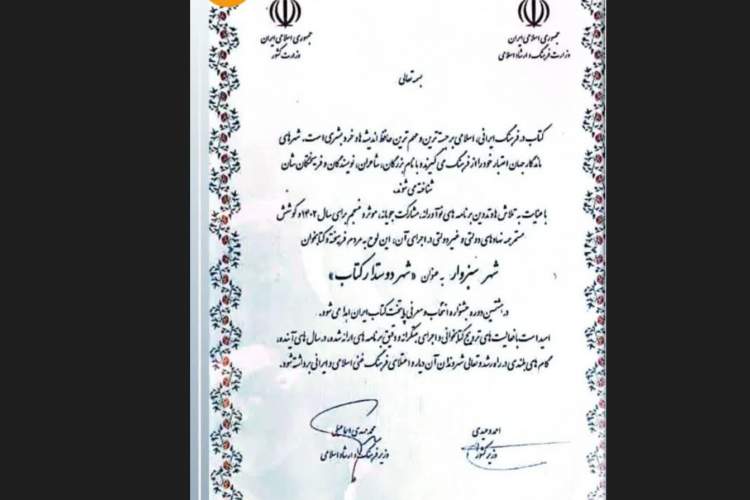 جمهوری اسلامی ایران
وزارت فرهنگ و ارشاد اسلامی
جمهوری اسلامی ایران
وزارت کشور
بسمه تعالی
کتاب در فرهنگ ایرانی، اسلامی برجسته‌ترین و مهم‌ترین حافظ اندیشه‌ها و خرد بشری است. شهرهای
ماندگار جهان اعتبار خود را از فرهنگ می‌گیرند و با نام بزرگان، شاعران، نویسندگان و فرهیختگان‌شان
شناخته می‌شوند.
با عنایت به تلاش‌ها و تدوین برنامه‌های نوآورانه، مشارکت‌جویانه، موثر و منسجم برای سال ۱۴۰۲ و کوشش
نهادهای دولتی و غیردولتی در اجرای آن، این لوح به مردم فرهیخته و کتابخوان
شهر سبزوار به عنوان «شهر دوستدار کتاب»
در هشتمین دوره جشنواره انتخاب و معرفی پایتخت کتاب ایران اهدا می‌شود.
امید است با فعالیت‌های ترویج کتابخوانی و اجرای و دقیق برنامه‌های ارائه شده، در سال‌های آینده،
گام‌های بلندی در راه رشد و تعالی شهروندان آن دیار و اعتلای فرهنگ غنی اسلامی و ایرانی برداشته شود.
احمد وحیدی
وزیر کشور
محمدمهدی اسماعیلی
وزیر فرهنگ و ارشاد اسلامی